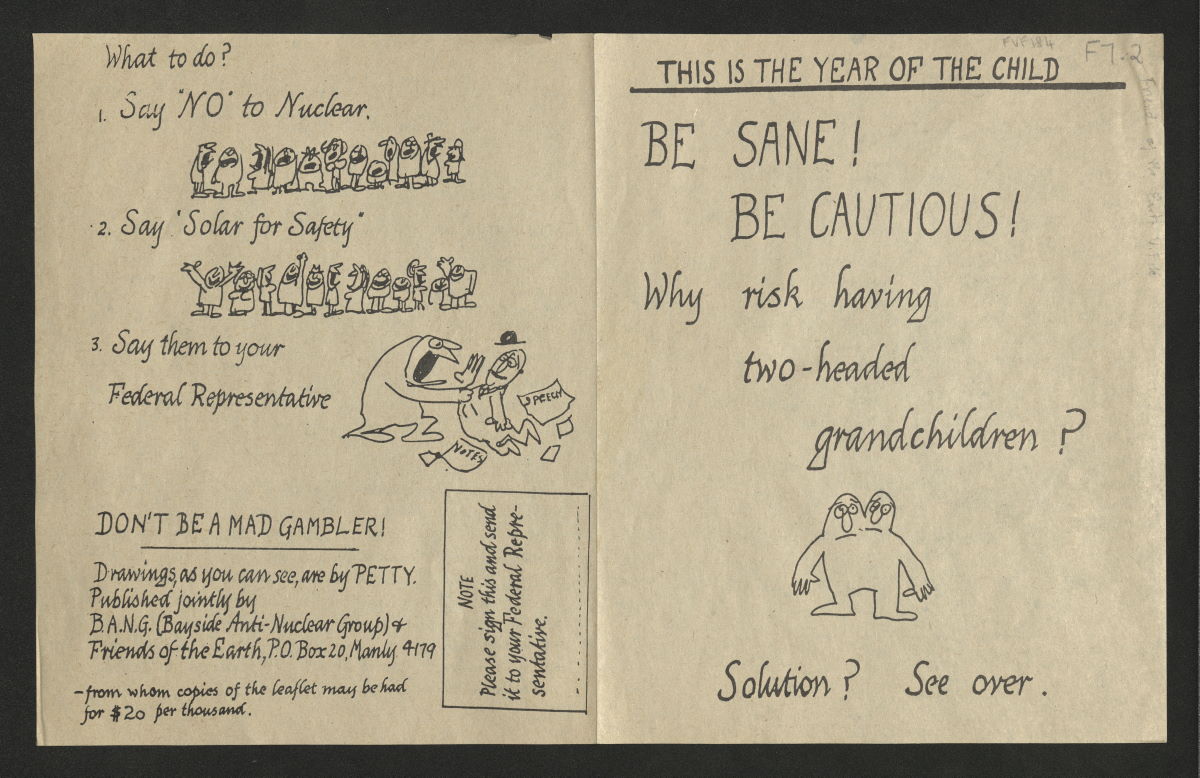 What to do?
1. Say "NO" to Nuclear.
2. Say "Solar for Safety"
3. Say them to your
Federal Representative
SPEECH
NOTES
DON'T BE A MAD GAMBLER!
Drawings, as you can see, are by PETTY.
Published jointly by
B.A.N.G. (Bayside Anti-Nuclear Group) &
Friends of the Earth, P.O. Box 20, Manly 4179
- from whom copies of the leaflet may be had
for $20 per thousand.
NOTE
Please sign this and send
it to your Federal Repre-
sentative.
FVF184
F7.2
THIS IS THE YEAR OF THE CHILD
BE SANE!
BE CAUTIOUS!
Why risk having
two-headed
grandchildren?
Solution? See over.